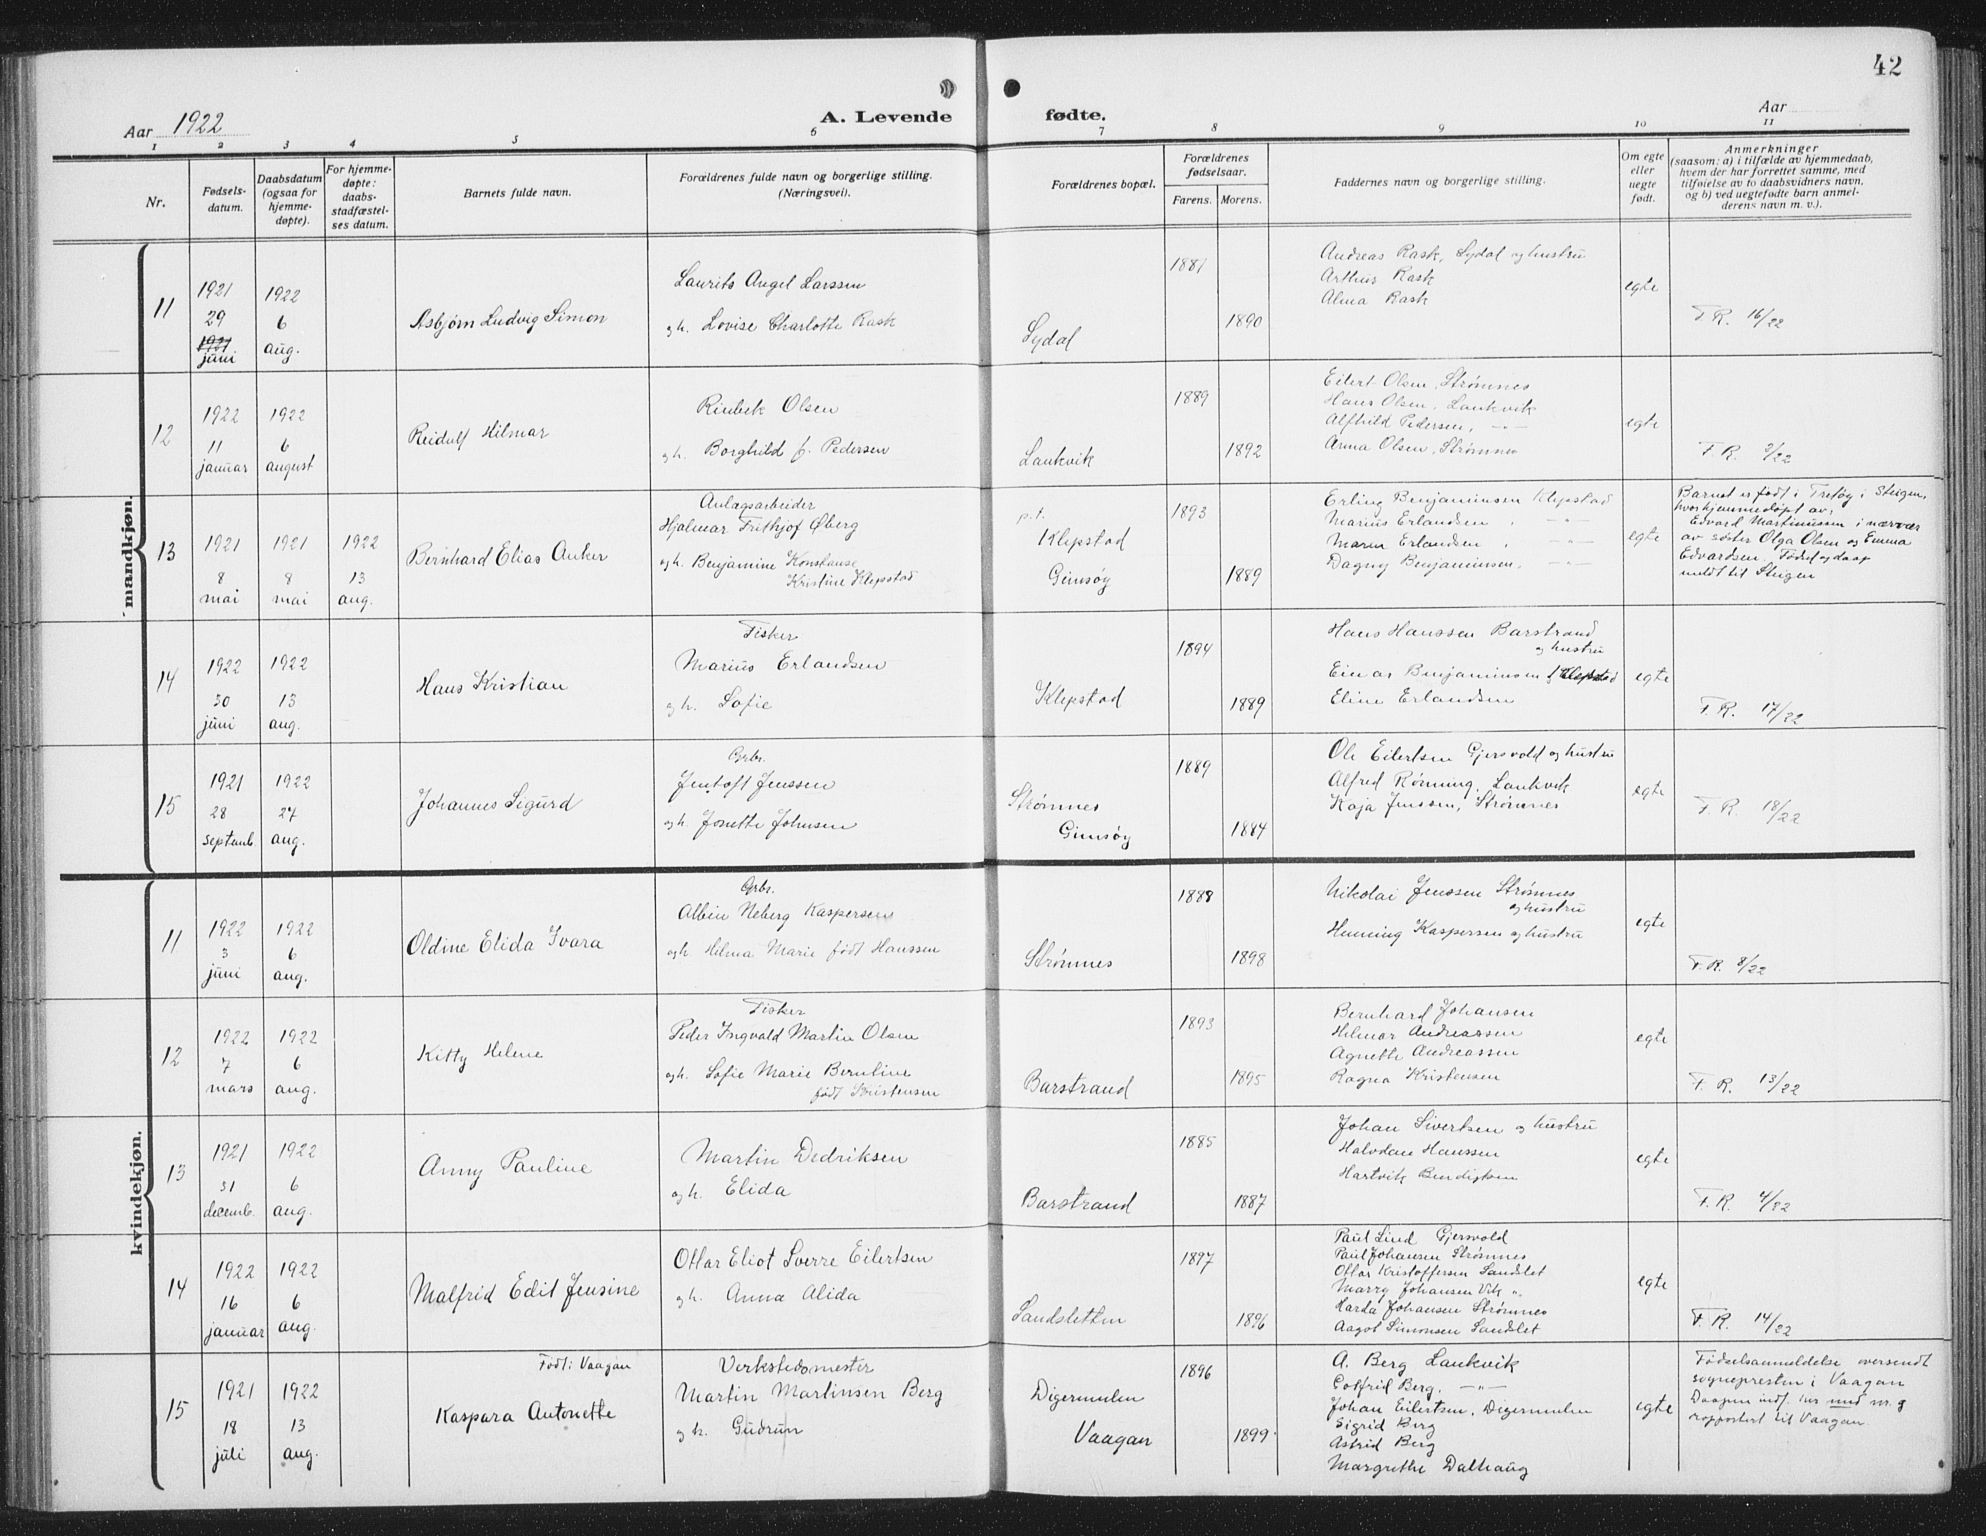 42
Aar 1922
A. Levende fødte.
Aar
1 2 3 4 5 6 7 8 9 10 11
Nr.
Fødsels-
datum.
Daabsdatum
(ogsaa for
hjemme-
døpte).
For hjemme-
døpte:
daabs-
stadfæstel-
ses datum.
Barnets fulde navn.
Forældrenes fulde navn og borgerlige stilling.
(Næringsvei).
Forældrenes bopæl.
Forældrenes
fødselsaar.
Farens. Morens.
Faddernes navn og borgerlige stilling.
Om egte
eller
uegte
født.
Anmerkninger
(saasom: a) i tilfælde av hjemmedaab,
hvem der har forrettet samme, med
tilføielse av to daabsvidners navn,
og b) ved uegtefødte barn anmel-
derens navn m. v.).
mandkjøn.
11
1921
29
1921
juni
1922
6
aug.
Asbjørn Ludvig Simon
Laurits Angel Larssen
og h. Lovise Charlotte Rask
Sydal
1881
1890
Andreas Rask, Sydal og hustru
Arthur Rask
Alma Rask
egte
F.R. 16/22
12
1922
11
januar
1922
6
august
Reidulf Hilmar
Rinbek Olsen
og h. Borghild f. Pedersen
Laukvik
1889
1892
Eilert Olsen, Strømnes
Hans Olsen, Laukvik
Alfhild Pedersen, -"-
Anna Olsen, Strømnes
egte
F.R. 2/22
13
1921
8
mai
1921
8
mai
1922
13
aug.
Bernhard Elias Anker
Anlægsarbeider
Hjalmar Frithjof Øberg
og h. Benjamine Konstanse
Kristine Klepstad
p.t.
Klepstad
Gimsøy
1893
1889
Erling Benjaminsen Klepstad
Marius Erlandsen, -"-
Marie Erlandsen, -"-
Dagny Benjaminsen, -"-
egte
Barnet er født i Tretøy i Steigen,
hvor hjemmedøpt av,
Edvard Martinussen i nærvær
av søster Olga Olsen og Emma
Edvardsen, Fødsel og daap
meldt til Steigen
14
1922
30
juni
1922
13
aug.
Hans Kristian
Fisker
Marius Erlandsen
og h. Sofie
Klepstad
1894
1889
Hans Hanssen Barstrand
og hustru
Einar Benjaminsen Klepstad
Eline Erlandsen
egte
F.R. 17/22
15
1921
28
septemb.
1922
27
aug.
Johannes Sigurd
Grbr.
Jentoft Jenssen
og h. Jonette Johnsen
Strømnes
Gimsøy
1889
1884
Ole Eilertsen Gjersvold og hustru
Alfred Rønning, Laukvik
Kaja Jenssen, Strømnes
egte
F.R. 18/22
kvindekjøn.
11
1922
3
juni
1922
6
aug.
Oldine Elida Ivara
Grbr.
Albin Neberg Kaspersen
og h. Helma Marie født Hanssen
Strømnes
1888
1898
Nikolai Jenssen Strømnes
og hustru
Henning Kaspersen og hustru
egte
F.R. 8/22
12
1922
7
mars
1922
6
aug.
Kitty Helene
Fisker
Peder Ingvald Martin Olsen
og h. Sofie Marie Berntine
født Kristensen
Barstrand
1893
1895
Bernhard Johansen
Helmer Andreassen
Agnette Andreassen
Ragna Kristensen
egte
F.R. 13/22
13
1921
31
decemb.
1922
6
aug.
Anny Pauline
Martin Dedriksen
og h. Elida
Barstrand
1885
1887
Johan Sivertsen og hustru
Halvdan Hanssen
Hartvik Bendigtsen
egte
F.R. 4/22
14
1922
16
januar
1922
6
aug.
Malfrid Edit Jensine
Ottar Eliot Sverre Eilertsen
og h. Anna Alida
Sandsletten
1897
1896
Paul Lind Gjersvold
Paul Johansen Strømnes
Ottar Kristoffersen Sandslet
Marry Johansen Vik "
Harda Johansen Strømnes
Aagot Simonsen Sandslet
egte
F.R. 14/22
15
1921
18
juli
1922
13
aug.
Født i Vaagan
Kaspara Antonette
Verkstedsmester
Martin Martinsen Berg
og h. Gudrun
Digermulen
Vaagan
1896
1899
A. Berg Laukvik
Gotfrid Berg, -"-
Johan Eilertsen, Digermulen
Sigrid Berg
Astrid Berg
Margrethe Dalhaug
egte
Fødselsanmeldelse oversendt
sogneprestin i Vaagan
Daapen indf. her med nr. og
rapportert til Vaagan.